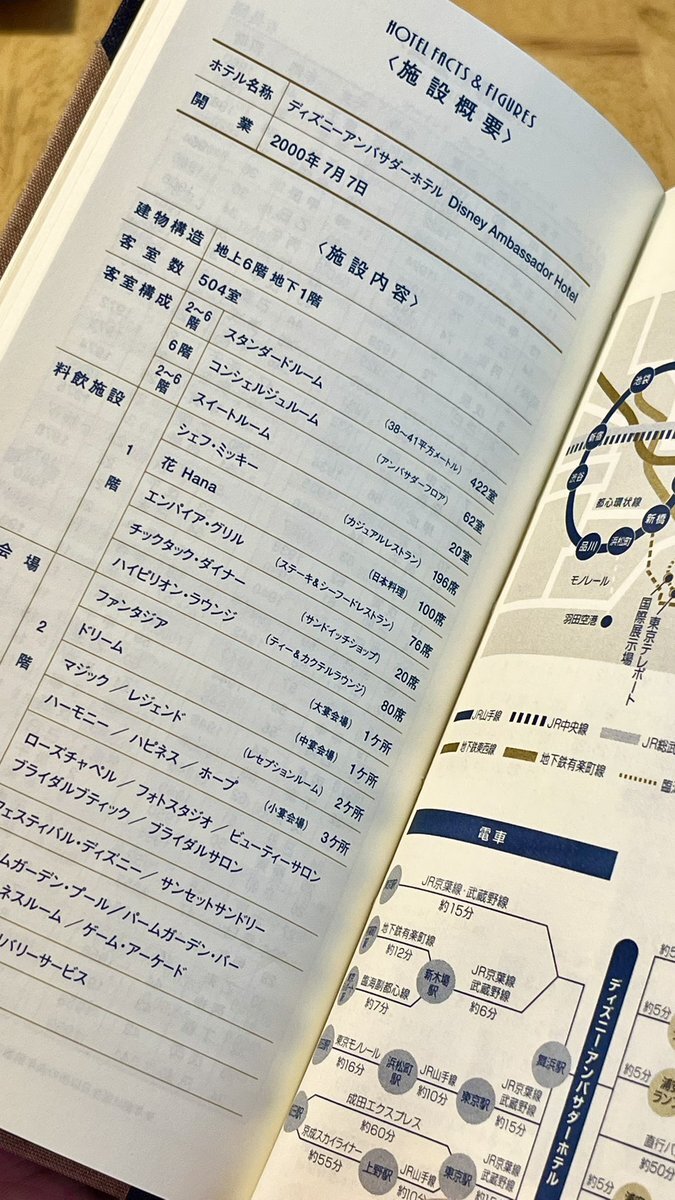 HOTEL FACTS & FIGURES
〈施設概要〉
ホテル名称 ディズニーアンバサダーホテル Disney Ambassador Hotel
開業 2000年7月7日
〈施設内容〉
建物構造 地上6階 地下1階
客室数 504室
客室構成 2〜6階 スタンダードルーム (38〜41平方メートル) 422室
6階 コンシェルジュルーム (アンバサダーフロア) 62室
2〜6階 スイートルーム 20室
料飲施設 1階 シェフ・ミッキー (カジュアルレストラン) 196席
花 Hana (日本料理) 100席
エンパイア・グリル (ステーキ&シーフードレストラン) 76席
チックタック・ダイナー (サンドイッチショップ) 20席
ハイピリオン・ラウンジ (ティー&カクテルラウンジ) 80席
会場 2階 ファンタジア (大宴会場) 1ケ所
ドリーム (中宴会場) 1ケ所
マジック/レジェンド (レセプションルーム) 2ケ所
ハーモニー/ハピネス/ホープ (小宴会場) 3ケ所
ローズチャペル/フォトスタジオ/ビューティーサロン
ブライダルブティック/ブライダルサロン
フェスティバル・ディズニー/サンセットサンドリー
ムガーデン・プール/パームガーデン・バー
ネスルーム/ゲーム・アーケード
バリーサービス
池袋
新宿
渋谷
都心環状線
新橋
品川
浜松町
モノレール
羽田空港
東京テレポート
国際展示場
JR山手線 JR中央線 JR総武
地下鉄東西線 地下鉄有楽町線 臨
電車
JR京葉線・武蔵野線
約15分
地下鉄有楽町線
約12分
新木場駅
JR京葉線
武蔵野線
約6分
臨海副都心線
約7分
舞浜駅
東京モノレール
約16分
浜松町駅
JR山手線
約10分
東京駅
JR京葉線
武蔵野線
約15分
成田エクスプレス
約60分
京成スカイライナー
約55分
上野駅
JR山手線
約10分
東京駅
JR京葉線
武蔵野線
ディズニーアンバサダーホテル
約5分
約5分
浦安
直行バ
約50分
約5分